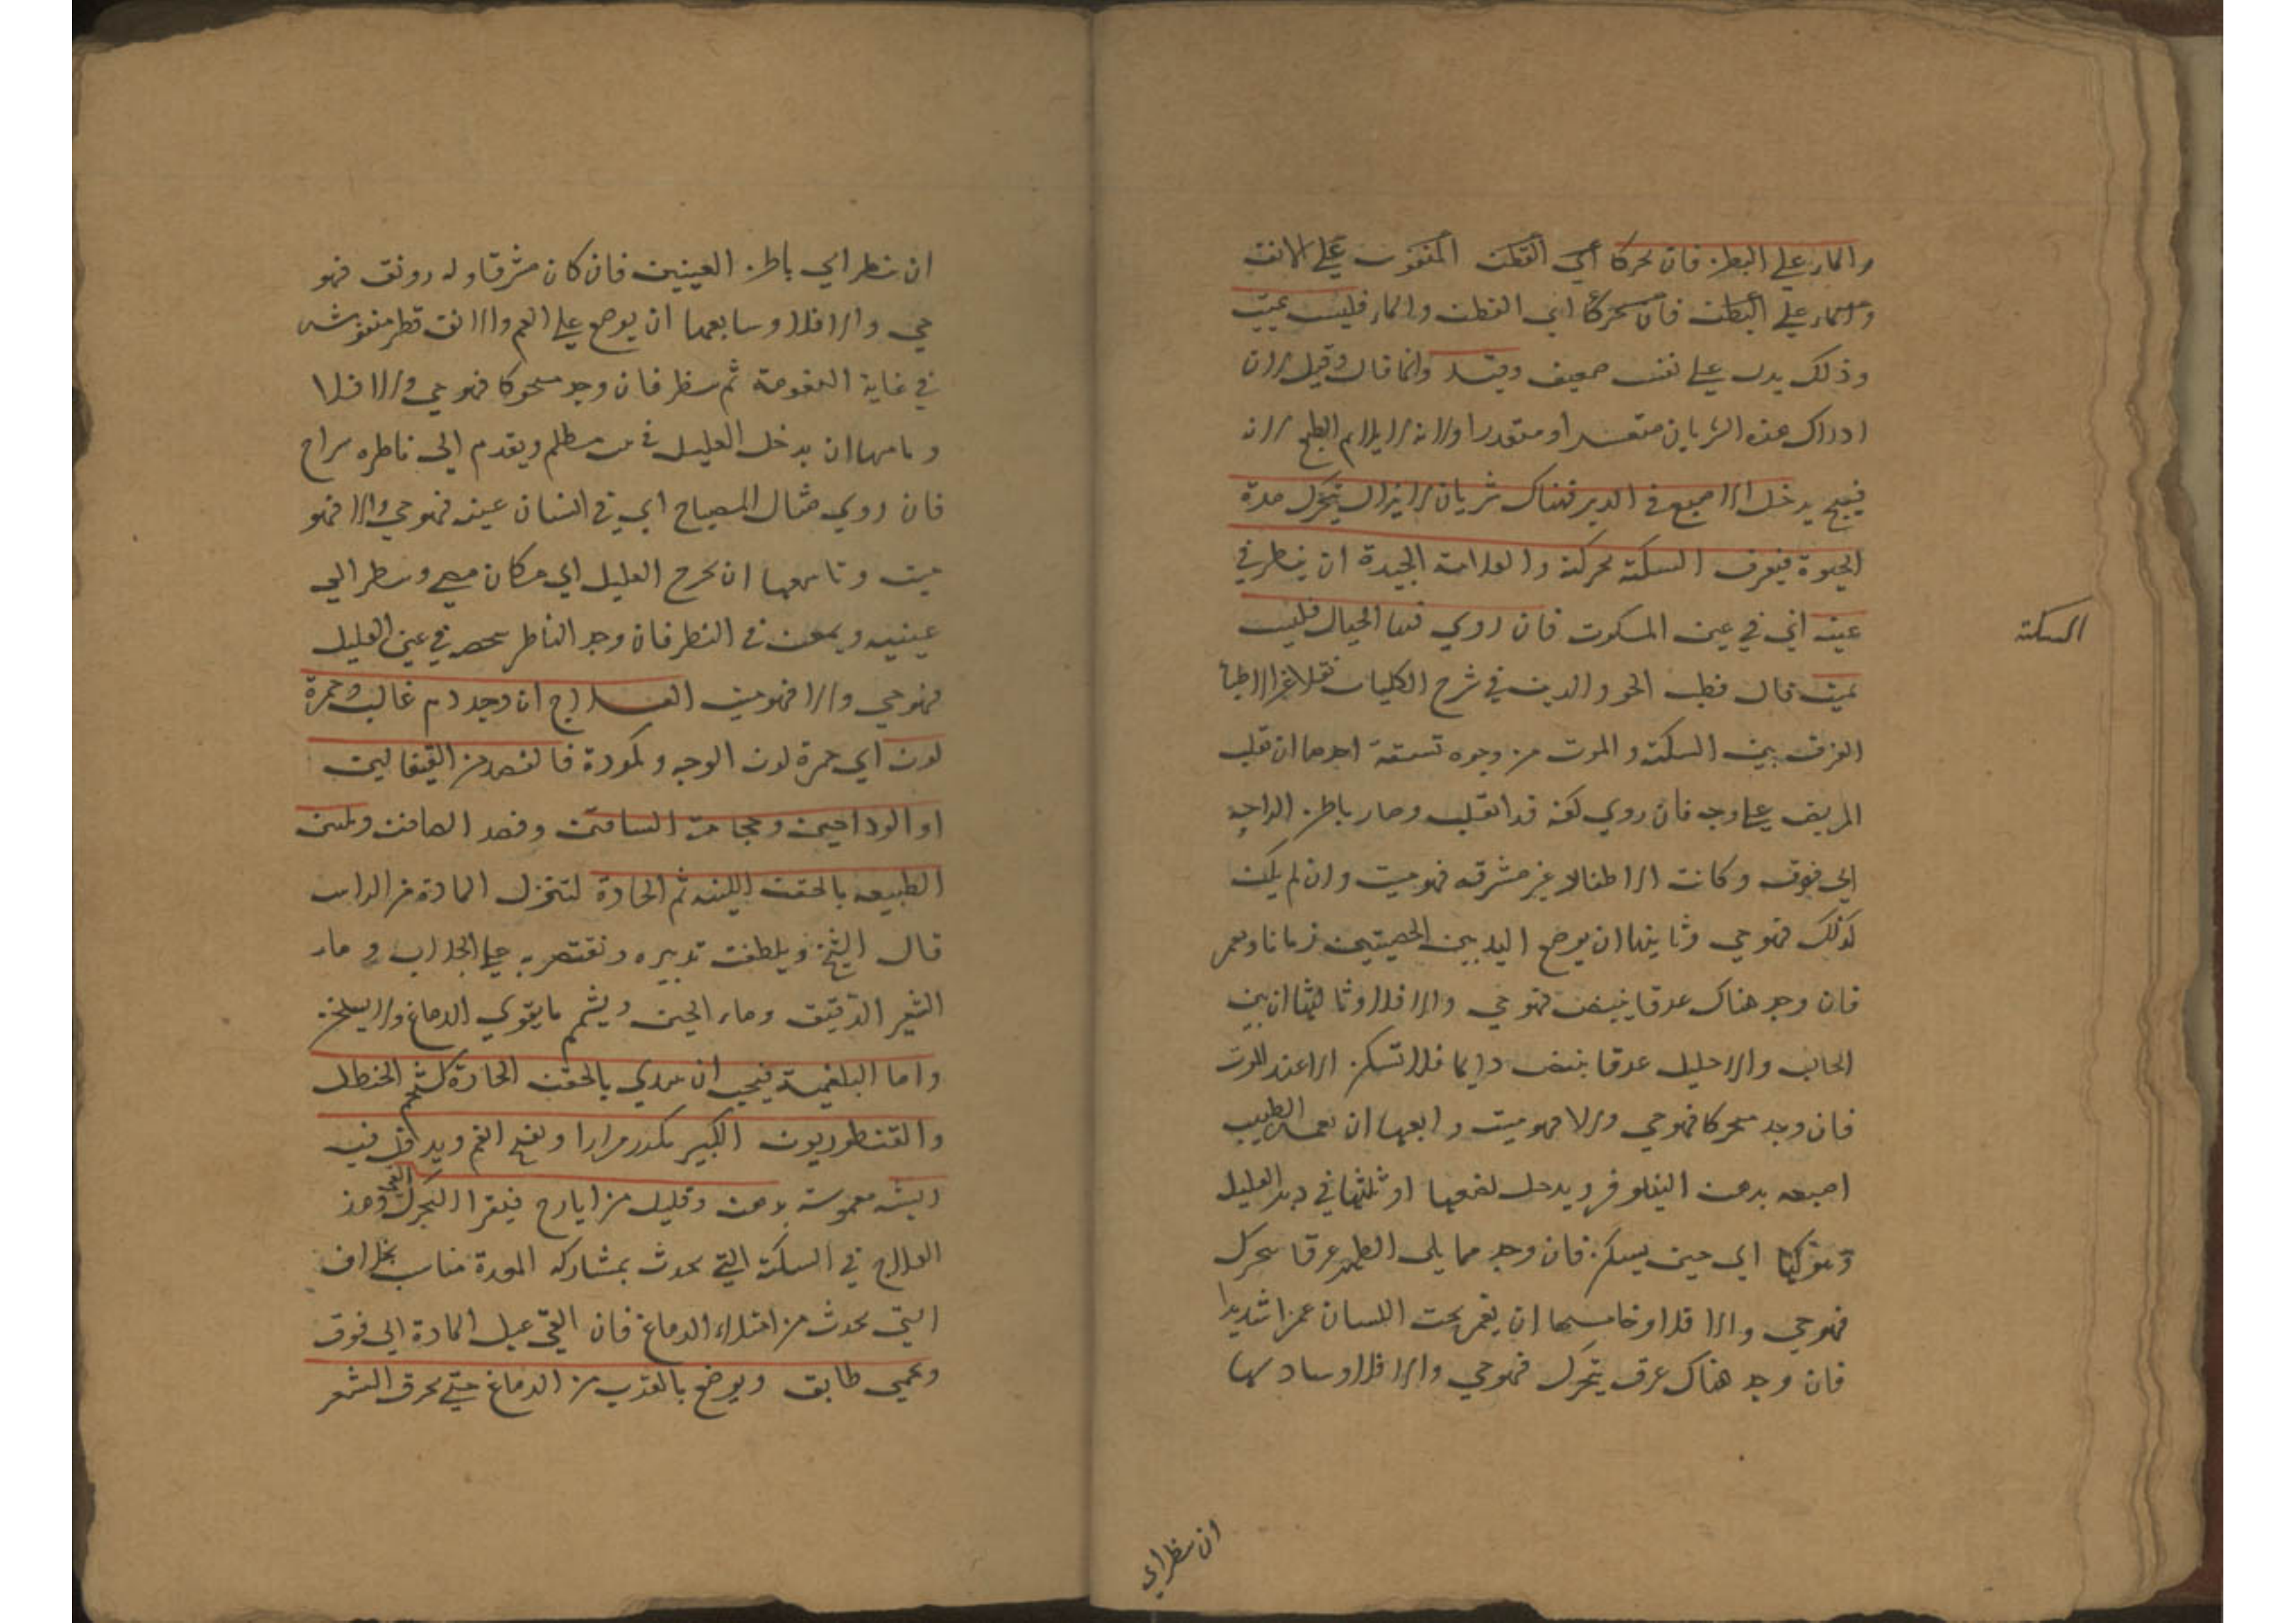 والماء علي البطن فان تحركا اي القطن المنفوش علي الانف
والماء علي البطن فان تحركا اي القطن والماء فليس بميت
وذلك يدل علي نفس ضعيف وقيل وانما قال وقيل لان
ادراك هذه الشريان متعسر او متعذر او لانه لا يلايم الطبع لانه
قبيح يدخل الاصبع في الدبر فهناك شريان لا يزال يتحرك مدة
الحيوة فيعرف السكتة بحركته والعلامة الجيدة ان ينظر في
عينه اي في عين المسكوت فان روي فيها الخيال فليس
السكتة
بميت قال قطب الحق والدين في شرح الكليات نقلا عن الاطبا
الفرق بين السكتة والموت من وجوه تسعة احدها ان تقلب
المريض علي وجه فان روي كفه قد انقلب وصار باطن الراحة
الي فوق وكانت الاظفار غير مشرقه فهو ميت وان لم يكن
كذلك فهو حي وثانيها ان يوضع اليد بين الخصيتين زمانا ويعمر
فان وجد هناك عرقا ينبض فهو حي والا فلا وثالثها ان بين
الحالب والاحليل عرقا ينبض دايما فلا تسكن الا عند الموت
فان وجد متحركا فهو حي والا فهو ميت ورابعها ان الطبيب
اصبعه بدهن النيلوفر ويدخل نصفها او ثلثها في دبر العليل
اي حين يسكن فان وجد مما يلي الظهر عرقا يتحرك
فهو حي والا فلا وخامسها ان يغمر تحت اللسان غمزا شديدا
فان وجد هناك عرق يتحرك فهو حي والا فلا وسادسها
ان ينظر الي
ان ينظر الي باطن العينين فان كان مشرقا وله رونق فهو
حي والا فلا وسابعها ان يوضع علي الفم والانف قطن منفوشه
في غاية النعومة ثم ينظر فان وجد متحركا فهو حي والا فلا
وثامنها ان يدخل العليل في بيت مظلم ويقدم الي ناظره سراج
فان روي مثال المصباح اي في انسان عينه فهو حي والا فهو
ميت وتاسعها ان يخرج العليل الي مكان مضي وينظر الي
عينيه ويمعن في النظر فان وجد الناظر شخصه في عين العليل
فهو حي والا فهو ميت العلاج ان وجد دم غالب وحمرة
لون اي حمرة لون الوجه وكمودة فالفصد من القيفالين
او الوداجين وحجامة الساقين وفصد الصافن وتليين
الطبيعه بالحقن اللينه ثم الحادة لتنزل المادة من الراس
قال الشيخ ويلطف تدبيره ونقتصر به علي الجلاب وماء
الشعير الرقيق وماء الجبن ويشم ما يقوي الدماغ ولا يسخن
واما البلغمية فيجب ان يبدي بالحقن الحادة كشحم الحنظل
والقنطوريون الكبير يكدر مرارا وتفتح الفم ويدخل فيه
ريشه مغموسة بدهن وقليل من ايارج فيقرا ليتحرك القي وهذ
العلاج في السكتة التي يحدث بمشاركه المعدة مناسب بخلاف
التي يحدث من امتلاء الدماغ فان القي يميل المادة الي فوق
ويحمي طابق ويوضع بالقرب من الدماغ حتي يحرق الشعر